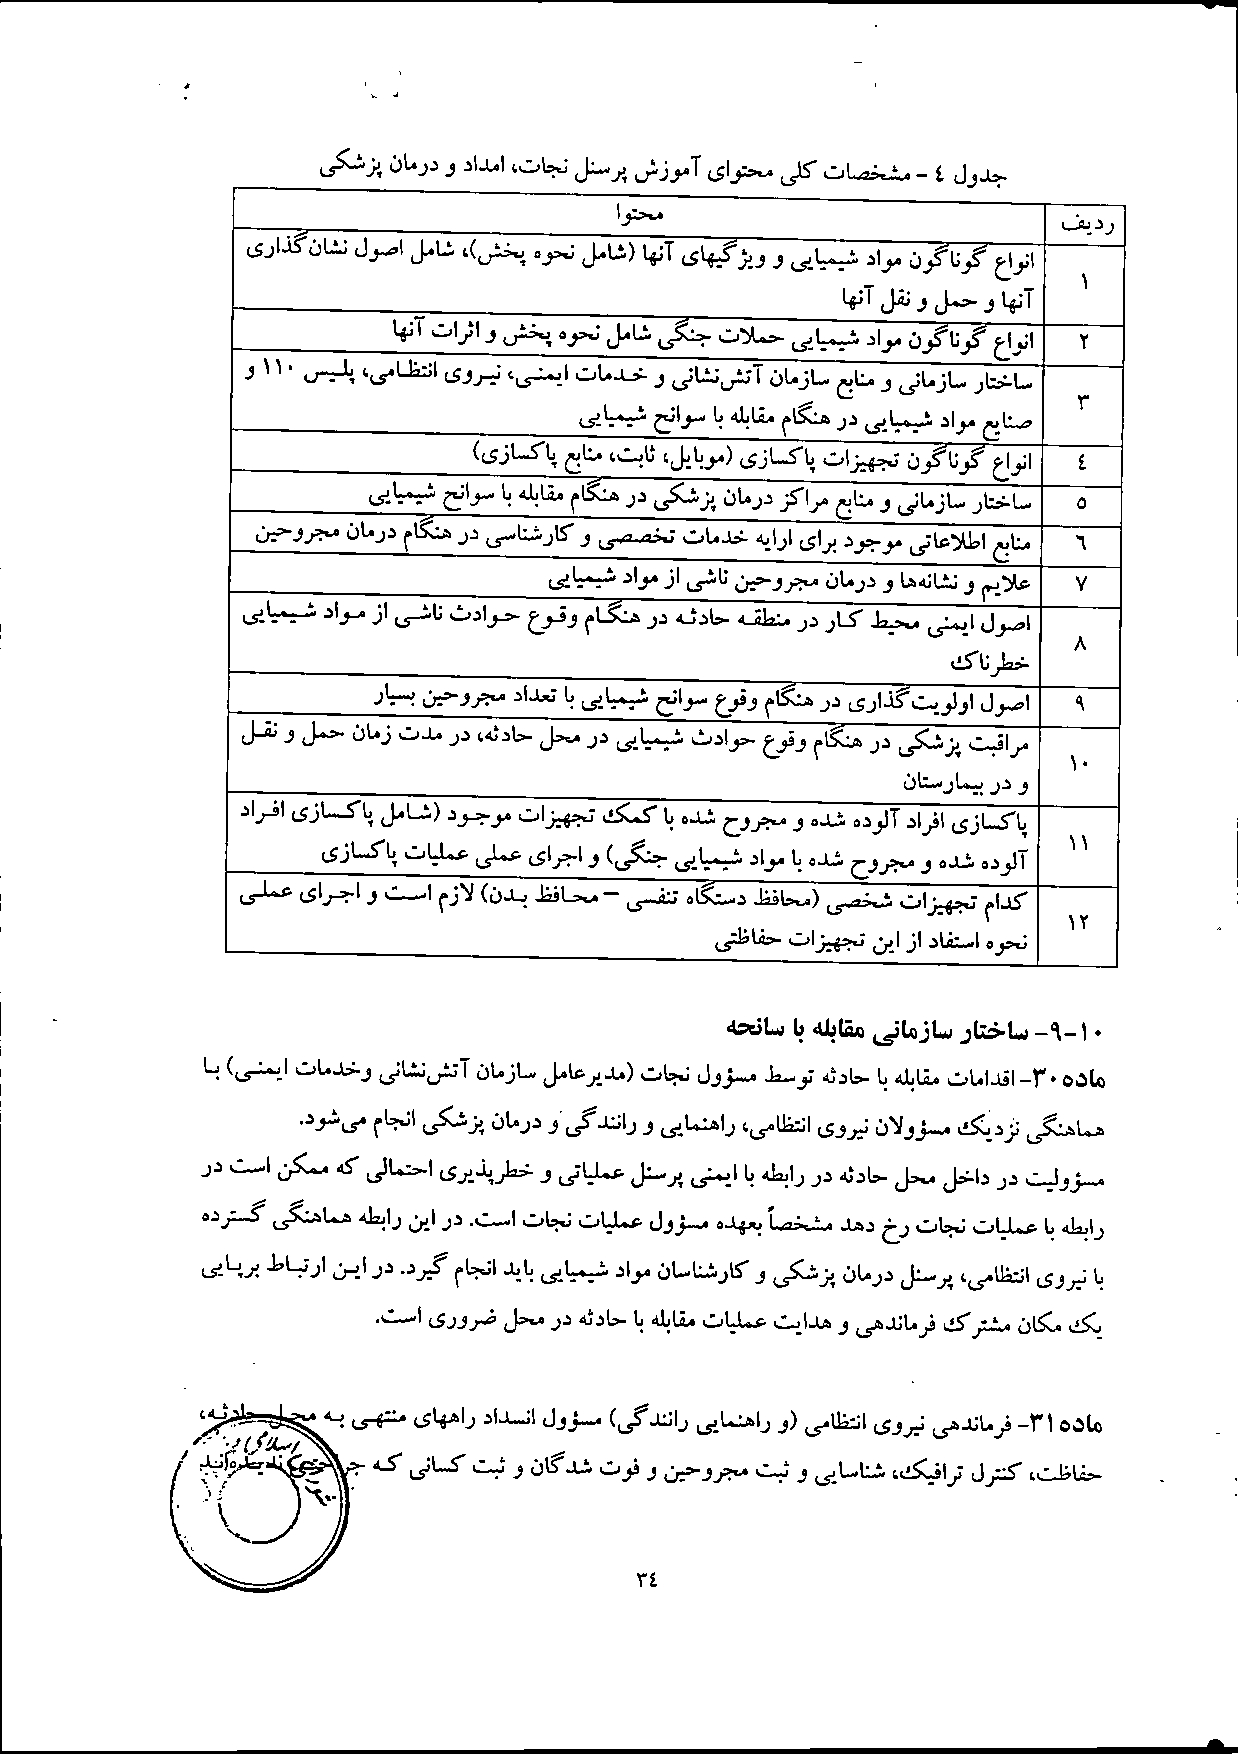 جدول ٤ - مشخصات کلی محتوای آموزش پرسنل نجات، امداد و درمان پزشکی
ردیف محتوا
۱ انواع گوناگون مواد شیمیایی و ویژگیهای آنها (شامل نحوه پخش)، شامل اصول نشان‌گذاری
آنها و حمل و نقل آنها
۲ انواع گوناگون مواد شیمیایی حملات جنگی شامل نحوه پخش و اثرات آنها
۳ ساختار سازمانی و منابع سازمان آتش‌نشانی و خدمات ایمنی، نیروی انتظامی، پلیس ۱۱۰ و
صنایع مواد شیمیایی در هنگام مقابله با سوانح شیمیایی
٤ انواع گوناگون تجهیزات پاکسازی (موبایل، ثابت، منابع پاکسازی)
٥ ساختار سازمانی و منابع مراکز درمان پزشکی در هنگام مقابله با سوانح شیمیایی
٦ منابع اطلاعاتی موجود برای ارایه خدمات تخصصی و کارشناسی در هنگام درمان مجروحین
۷ علایم و نشانه‌ها و درمان مجروحین ناشی از مواد شیمیایی
۸ اصول ایمنی محیط کار در منطقه حادثه در هنگام وقوع حوادث ناشی از مواد شیمیایی
خطرناک
۹ اصول اولویت‌گذاری در هنگام وقوع سوانح شیمیایی با تعداد مجروحین بسیار
۱۰ مراقبت پزشکی در هنگام وقوع حوادث شیمیایی در محل حادثه، در مدت زمان حمل و نقل
و در بیمارستان
۱۱ پاکسازی افراد آلوده شده و مجروح شده با کمک تجهیزات موجود (شامل پاکسازی افراد
آلوده شده و مجروح شده با مواد شیمیایی جنگی) و اجرای عملی عملیات پاکسازی
۱۲ کدام تجهیزات شخصی (محافظ دستگاه تنفسی – محافظ بدن) لازم است و اجرای عملی
نحوه استفاد از این تجهیزات حفاظتی
۱۰-۹- ساختار سازمانی مقابله با سانحه
ماده ۳۰- اقدامات مقابله با حادثه توسط مسؤول نجات (مدیرعامل سازمان آتش‌نشانی وخدمات ایمنی) با
هماهنگی نزدیک مسؤولان نیروی انتظامی، راهنمایی و رانندگی و درمان پزشکی انجام می‌شود.
مسؤولیت در داخل محل حادثه در رابطه با ایمنی پرسنل عملیاتی و خطرپذیری احتمالی که ممکن است در
رابطه با عملیات نجات رخ دهد مشخصاً بعهده مسؤول عملیات نجات است. در این رابطه هماهنگی گسترده
با نیروی انتظامی، پرسنل درمان پزشکی و کارشناسان مواد شیمیایی باید انجام گیرد. در این ارتباط برپایی
یک مکان مشترک فرماندهی و هدایت عملیات مقابله با حادثه در محل ضروری است.
ماده ۳۱- فرماندهی نیروی انتظامی (و راهنمایی رانندگی) مسؤول انسداد راههای منتهی به محل حادثه،
حفاظت، کنترل ترافیک، شناسایی و ثبت مجروحین و فوت شدگان و ثبت کسانی که
۳٤